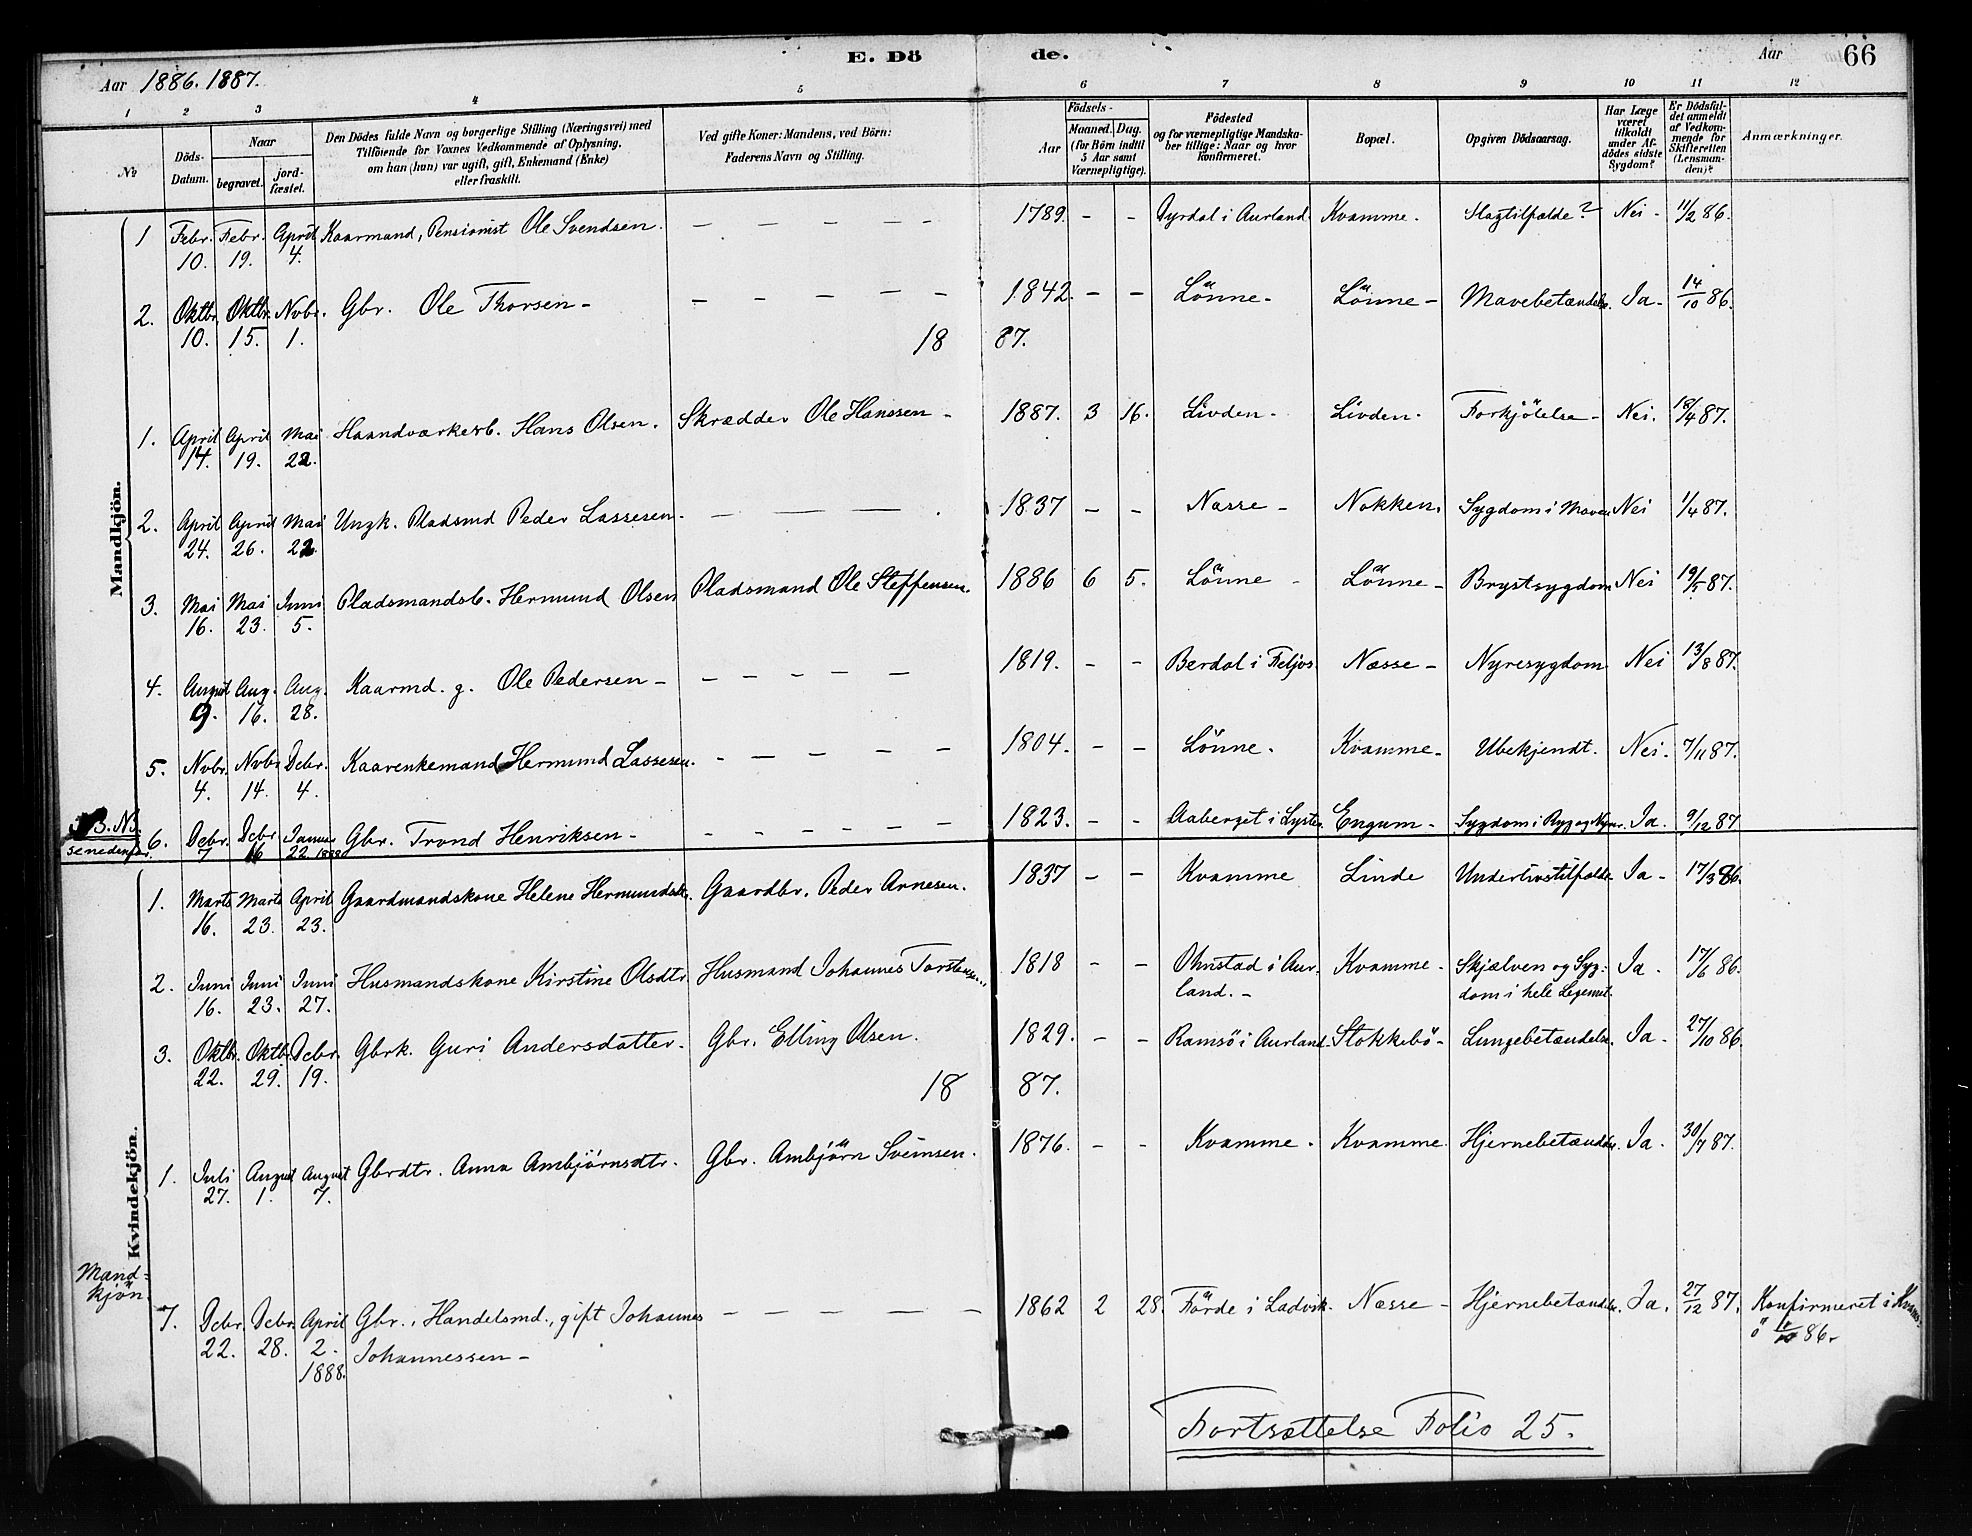 E. Dö de.
Aar 1886. 1887. Aar 66
1 2 3 4 5 6 7 8 9 10 11 12
No
Döds-Datum.
Naar begravet. jordfæstet.
Den Dödes fulde Navn og borgerlige Stilling (Næringsvei) med Tilföiende for Voxnes Vedkommende af Oplysning, om han (hun) var ugift, gift, Enkemand (Enke) eller fraskilt.
Ved gifte Koner: Mandens, ved Börn: Faderens Navn og Stilling.
Födsels-
Aar Maaned. Dag. (for Börn indtil 5 Aar samt Værnepligtige).
Födested og for værnepligtige Mandskaber tillige: Naar og hvor konfirmeret.
Bopæl.
Opgiven Dödsaarsag.
Har Læge været tilkaldt under Afdödes sidste Sygdom?
Er Dödsfaldet anmeldt af Vedkommende for Skifteretten (Lensmanden)?
Anmærkninger.
Mandkjön.
1 Febr. 10. Febr. 19. April 4. Kaarmand, Pensionist Ole Svendsen. — — — — — 1789. - - Dyrdal i Aurland Kvamme. Slagtilfælde? Nei - 11/2 86.
2. Oktbr. 10. Oktbr. 15. Novbr. 1. Gbr. Ole Thorsen - — — — — — 1842. - - Lönne - Lönne - Mavebetændelse. Ja - 14/10 86.
18 87.
1. April 14. April 19. Mai 22. Haandværkerb. Hans Olsen. Skrædder Ole Hanssen - 1887. 3 16. Livden - Livden. Forkjölelse - Nei. 18/4 87.
2. April 24. April 26. Mai 22. Ungk. Pladsmd Peder Lassesen. — — — — 1837 - - Næsse - Nokken. Sygdom i Maven Nei 1/4 87.
3. Mai 16. Mai 23. Juni 5. Pladsmandsb. Hermund Olsen Pladsmand Ole Steffensen. 1886 6 5. Lönne - Lönne - Brystsygdom Nei 19/5 87.
4. August 9. Aug. 16. Aug. 28. Kaarmd. g. Ole Pedersen - — — — — — 1819. - - Berdal i Feljos Næsse - Nyresygdom Nei 13/8 87.
5. Novbr. 4. Novbr 14. Debr. 4. Kaarenkemand Hermund Lassesen. - — — — — 1804. - - Lönne. Kvamme - Ubekjendt. Nei. 7/11 87.
NB. NB. se nedenfor
6. Debr. 7 Debr 16 Januar 22. 1888 Gbr. Trond Henriksen - — — — — — — 1823. - - Aaberget i Lyster Engum - Sygdom i Ryg og Nyrer. Ja. 9/12 87
Kvindekjön.
1. Marts 16. Marts 23. April 23. Gaardmandskone Helene Hermundsdtr. Gaardbr. Peder Arnesen. 1837 - - Kvamme Linde Underlivstilfælde. Ja - 17/3 86.
2. Juni 16. Juni 23. Juni 27. Husmandskone Kirstine Olsdtr. Husmand Johannes Torstensen 1818 - - Ohnstad i Aurland. - Kvamme - Skjælven og Sygdom i hele Legemet. Ja - 17/6 86.
3. Oktbr. 22. Oktbr. 29. Debr. 19. Gbrk. Guri Andersdatter. Gbr. Elling Olsen. 1829. - - Ramsö i Aurland - Stokkebö - Lungebetændelse. Ja - 27/10 86.
18 87.
1. Juli 27. August 1. August 7. Gbrdtr. Anna Ambjörnsdtr. Gbr. Ambjörn Sveinsen. 1876. - - Kvamme. Kvamme. Hjernebetændelse. Ja. 30/7 87.
Mandkjön.
7. Debr. 22. Debr. 28. April 2. 1888. Gbr., Handelsmd., gift Johannes Johannessen - — — — — — 1862 2 28. Förde i Ladvik. Næsse - Hjernebetændelse. Ja. 27/12 87. Konfirmeret i Kvamsö 86.
Fortsættelse Folio 25.